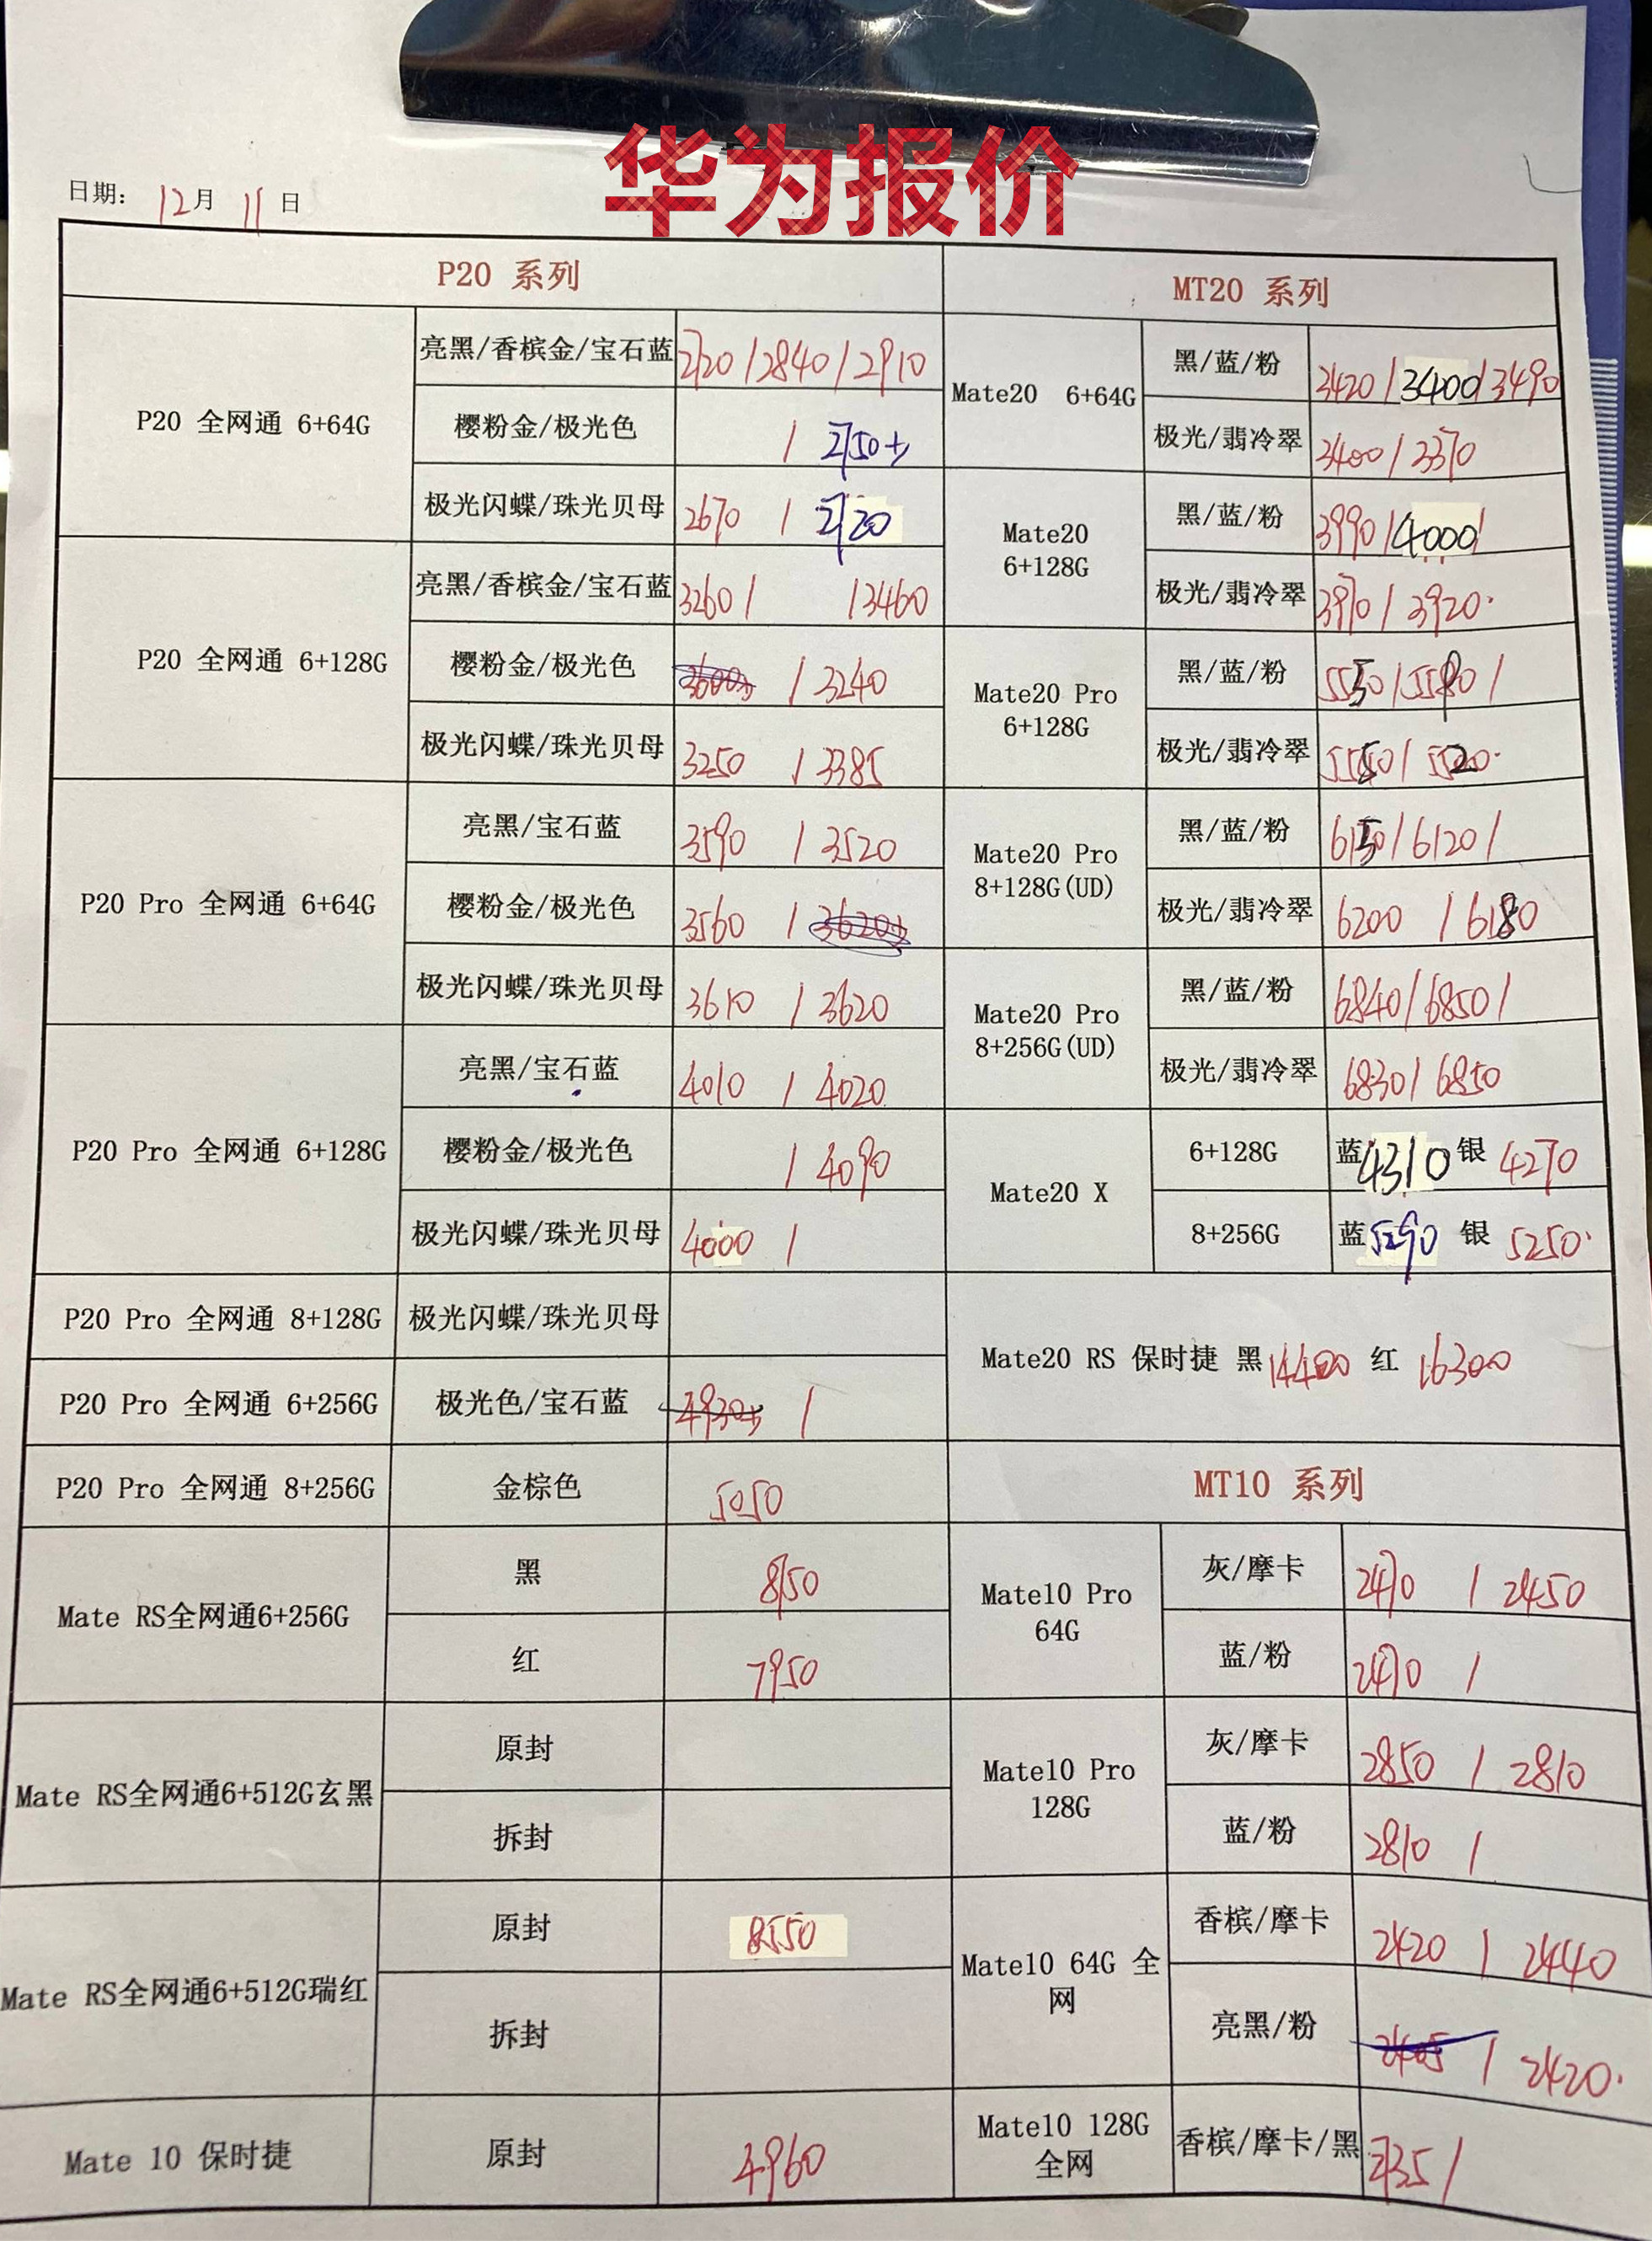 华为报价
日期： 12月 11 日
P20 系列
P20 全网通 6+64G
亮黑/香槟金/宝石蓝 2720/2840/2910
樱粉金/极光色 / 2750+
极光闪蝶/珠光贝母 2670 / 2720
P20 全网通 6+128G
亮黑/香槟金/宝石蓝 3260/ /3460
樱粉金/极光色 / 3240
极光闪蝶/珠光贝母 3250 / 3385
P20 Pro 全网通 6+64G
亮黑/宝石蓝 3590 / 3520
樱粉金/极光色 3560 /
极光闪蝶/珠光贝母 3610 / 3620
P20 Pro 全网通 6+128G
亮黑/宝石蓝 4010 / 4020
樱粉金/极光色 / 4090
极光闪蝶/珠光贝母 4000 /
P20 Pro 全网通 8+128G 极光闪蝶/珠光贝母
P20 Pro 全网通 6+256G 极光色/宝石蓝 /
P20 Pro 全网通 8+256G 金棕色 5050
Mate RS全网通6+256G
黑 8150
红 7950
Mate RS全网通6+512G玄黑
原封
拆封
Mate RS全网通6+512G瑞红
原封 8550
拆封
Mate 10 保时捷 原封 4960
MT20 系列
Mate20 6+64G
黑/蓝/粉 3420/3400/3490
极光/翡冷翠 3400/3370
Mate20
6+128G
黑/蓝/粉 3990/4000/
极光/翡冷翠 3970/3920.
Mate20 Pro
6+128G
黑/蓝/粉 5550/5590/
极光/翡冷翠 5550/5520.
Mate20 Pro
8+128G(UD)
黑/蓝/粉 6150/6120/
极光/翡冷翠 6200 /6180
Mate20 Pro
8+256G(UD)
黑/蓝/粉 6840/6850/
极光/翡冷翠 6830/6850
Mate20 X
6+128G 蓝4310 银 4270
8+256G 蓝5290 银 5250.
Mate20 RS 保时捷 黑14400 红 16300
MT10 系列
Mate10 Pro
64G
灰/摩卡 2470 / 2450
蓝/粉 2470 /
Mate10 Pro
128G
灰/摩卡 2850 / 2810
蓝/粉 2810 /
Mate10 64G 全
网
香槟/摩卡 2420 / 2440
亮黑/粉 / 2420.
Mate10 128G
全网
香槟/摩卡/黑 2735/